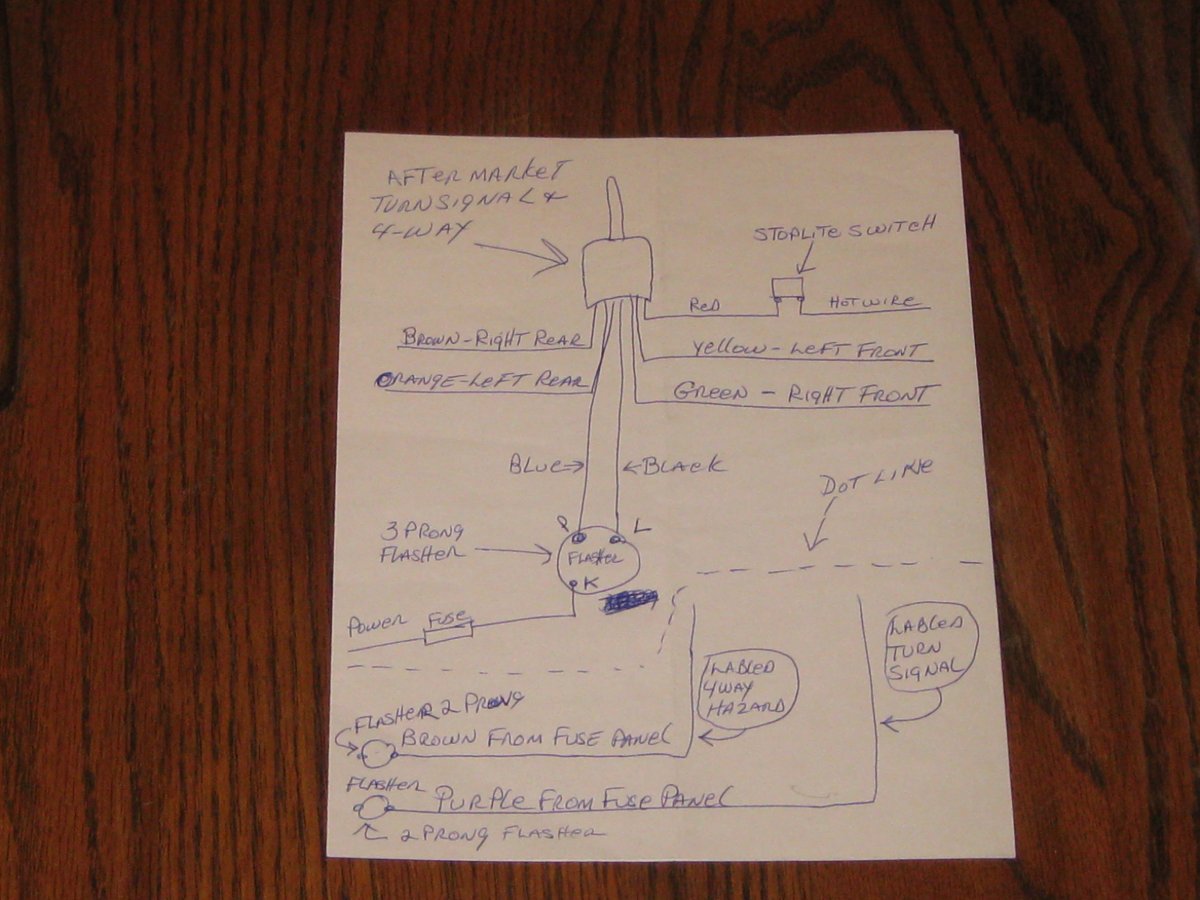 AFTER MARKET
TURN SIGNAL &
4-WAY
STOPLITE SWITCH
RED
HOT WIRE
BROWN-RIGHT REAR
YELLOW-LEFT FRONT
ORANGE-LEFT REAR
GREEN - RIGHT FRONT
BLUE
BLACK
DOT LINE
P
L
3 PRONG
FLASHER
FLASHER
K
POWER
FUSE
LABLED
TURN
SIGNAL
LABLED
4WAY
HAZARD
FLASHER 2 PRONG
BROWN FROM FUSE PANEL
FLASHER
PURPLE FROM FUSE PANEL
2 PRONG FLASHER